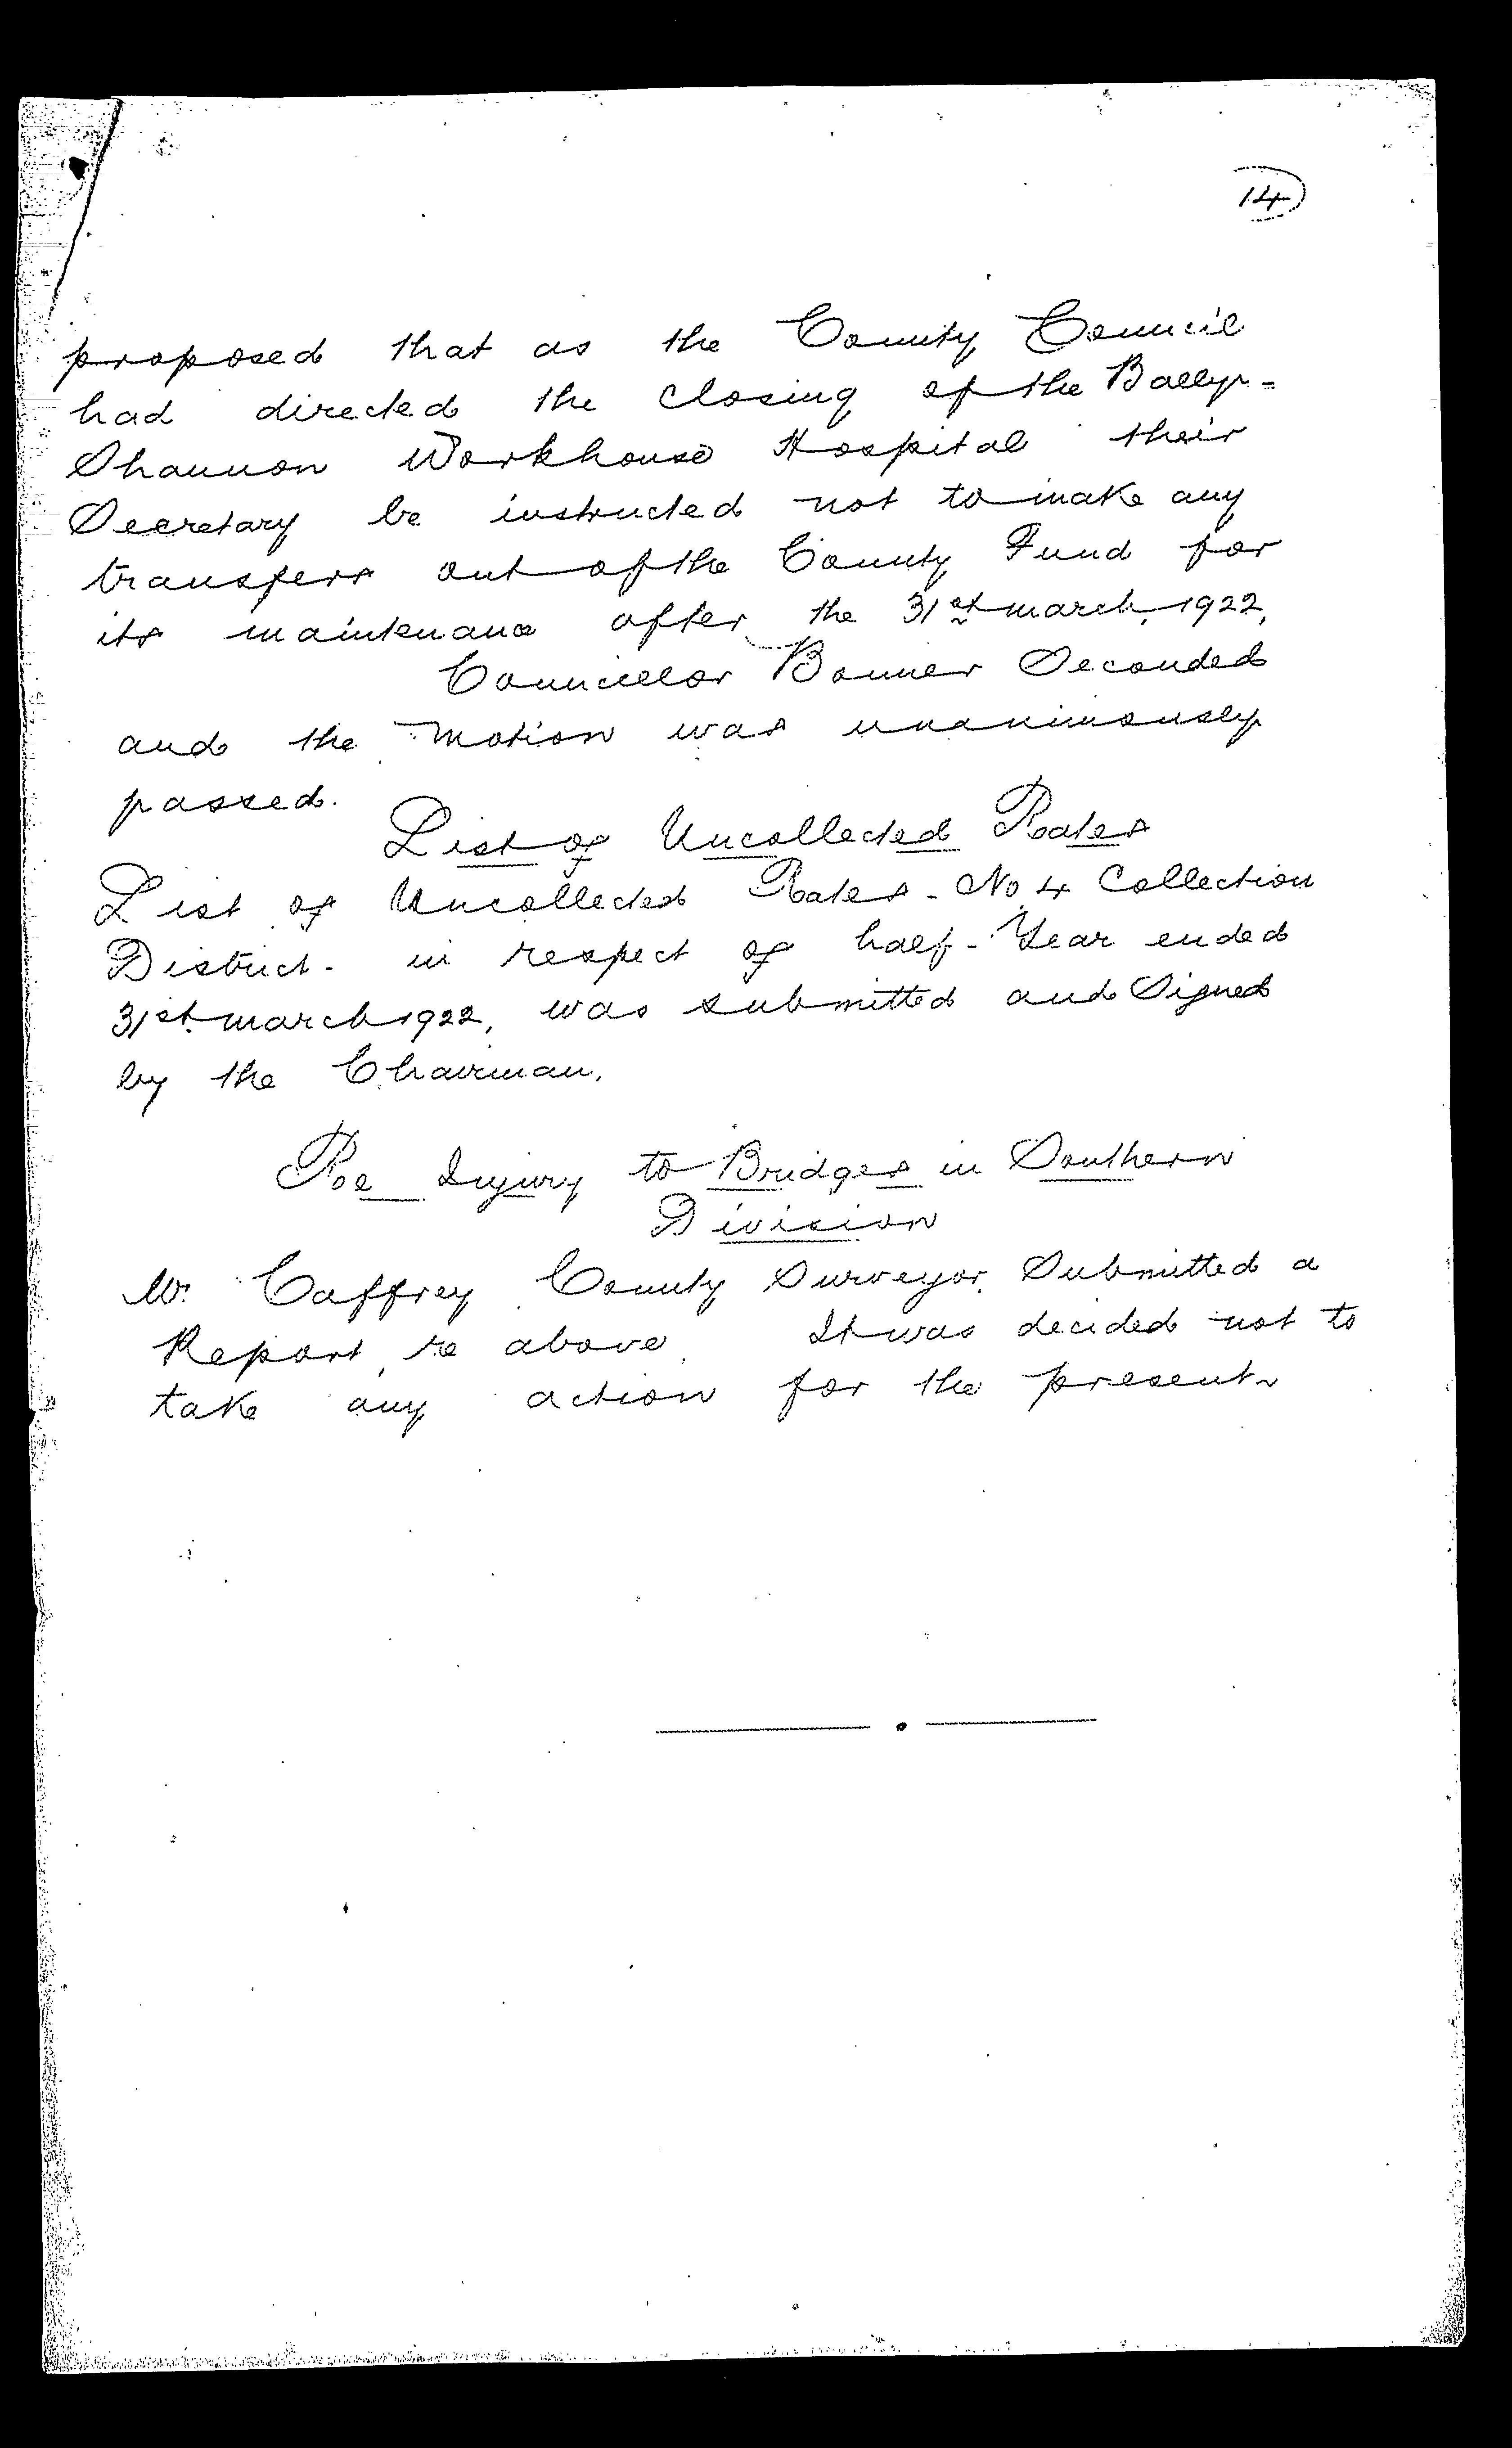 14
proposed that as the County Council
had directed the closing of the Bally-
Shannon Workhouse Hospital their
Secretary be instructed not to make any
transfers out of the County Fund for
its maintenance after the 31st march, 1922,
Councillor Bonner Seconded
and the motion was unanimously
passed.
List of Uncollected Rates
List of Uncollected Rates - No 4 Collection
District - in respect of half-Year ended
31st march 1922, was submitted and Signed
by the Chairman.
Re Injury to Bridges in Southern
Division
Mr. Caffrey County Surveyor, Submitted a
Report re above. It was decided not to
take any action for the present